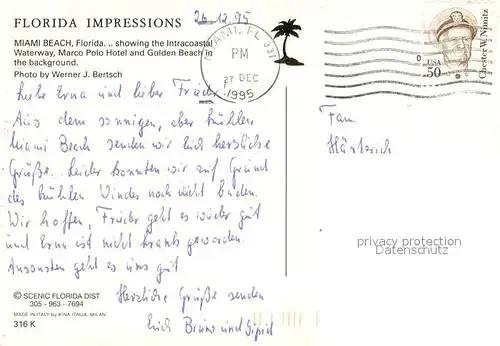 FLORIDA IMPRESSIONS
26.12.95
MIAMI BEACH, Florida... showing the Intracoastal
Waterway, Marco Polo Hotel and Golden Beach in
the background.
Photo by Werner J. Bertsch
MIAMI, FL 331
PM
27 DEC
1995
USA
50
Chester W. Nimitz
Liebe Erna und lieber Frieder,
Aus dem sonnigen, aber kühlen
Miami Beach senden wir Euch herzliche
Grüße. Leider konnten wir auf Grund
des kühlen Windes noch nicht baden.
Wir hoffen, Frieder geht es wieder gut
und Erna ist nicht krank geworden.
Ansonsten geht es uns gut
Herzliche Grüße senden
Euch Bruno und Sigrid
Fam.
Härterich
privacy protection
Datenschutz
© SCENIC FLORIDA DIST
305 - 963 - 7694
MADE IN ITALY by KINA ITALIA, MILAN
316 K